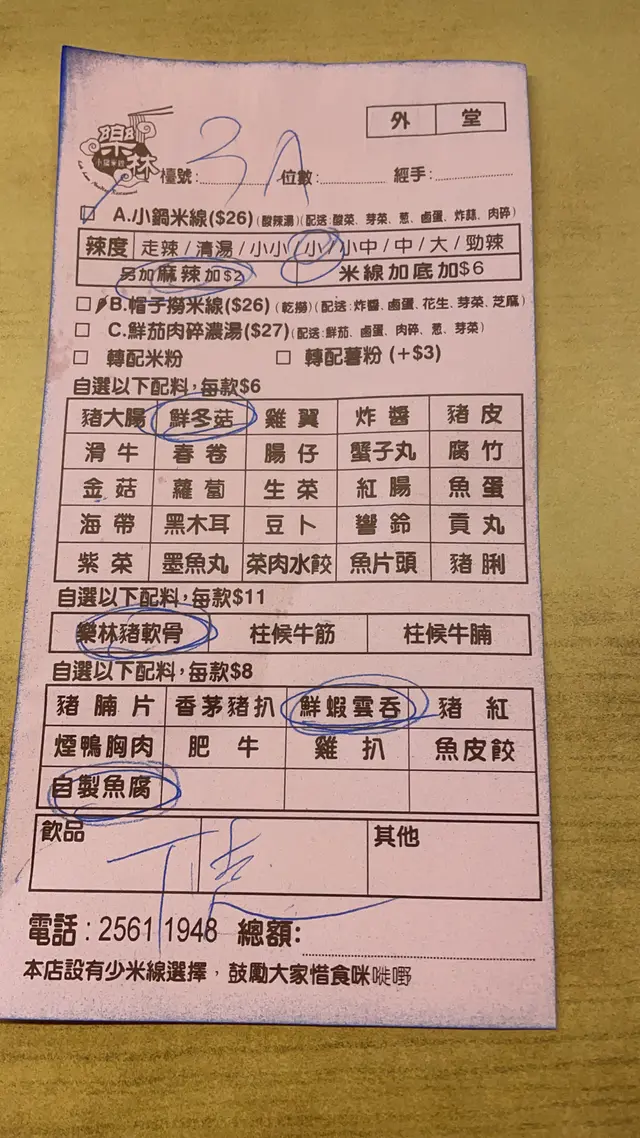 外 堂
樂林
小鍋米線
3A
檯號: 位數: 經手:
□ A.小鍋米線($26) (酸辣湯) (配送:酸菜、芽菜、葱、鹵蛋、炸蒜、肉碎)
辣度 走辣 / 清湯 / 小小 / 小 / 小中 / 中 / 大 / 勁辣
另加麻辣加$2 米線加底加$6
□ B.帽子撈米線($26) (乾撈) (配送:炸醬、鹵蛋、花生、芽菜、芝麻)
□ C.鮮茄肉碎濃湯($27) (配送:鮮茄、鹵蛋、肉碎、葱、芽菜)
□ 轉配米粉 □ 轉配薯粉 (+$3)
自選以下配料,每款$6
豬大腸 鮮冬菇 雞翼 炸醬 豬皮
滑牛 春卷 腸仔 蟹子丸 腐竹
金菇 蘿蔔 生菜 紅腸 魚蛋
海帶 黑木耳 豆卜 響鈴 貢丸
紫菜 墨魚丸 菜肉水餃 魚片頭 豬脷
自選以下配料,每款$11
樂林豬軟骨 柱候牛筋 柱候牛腩
自選以下配料,每款$8
豬腩片 香茅豬扒 鮮蝦雲吞 豬紅
煙鴨胸肉 肥牛 雞扒 魚皮餃
自製魚腐
飲品 其他
電話:2561 1948 總額:
本店設有少米線選擇,鼓勵大家惜食咪嘥嘢